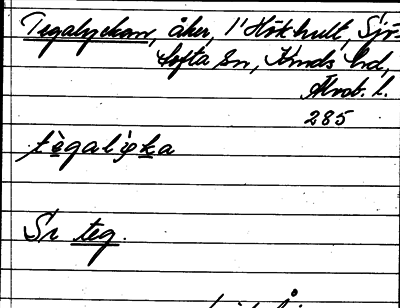 Tegalyckan, åker, 1' Hökhult, Sjö-
tofta sn, Kinds hd,
Älvsb. l.
285
tègalỳka
Sr teg.